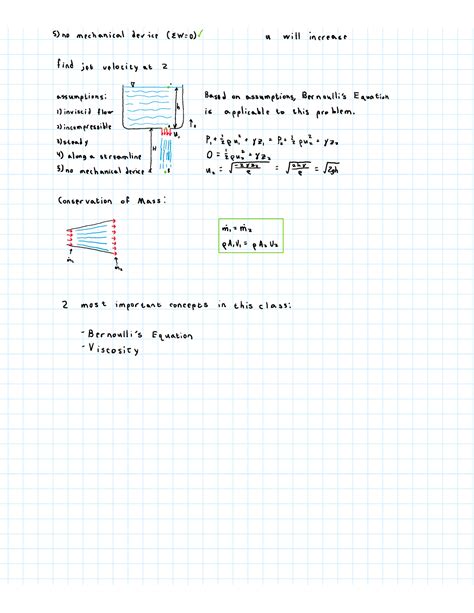 5) no mechanical device (ΣW=0) ✓ u will increase
find jet velocity at 2
assumptions:
1) inviscid flow
2) incompressible
3) steady
4) along a streamline
5) no mechanical device
h
H
Based on assumptions, Bernoulli's Equation
is applicable to this problem.
P₁ + ½ρu₁² + γz₁ = P₂ + ½ρu₂² + γz₂
0 = ½ρu₂² + γz₂
Conservation of Mass:
ṁ₁
ṁ₂
ṁ₁ = ṁ₂
ρA₁V₁ = ρA₂U₂
2 most important concepts in this class:
- Bernoulli's Equation
- Viscosity